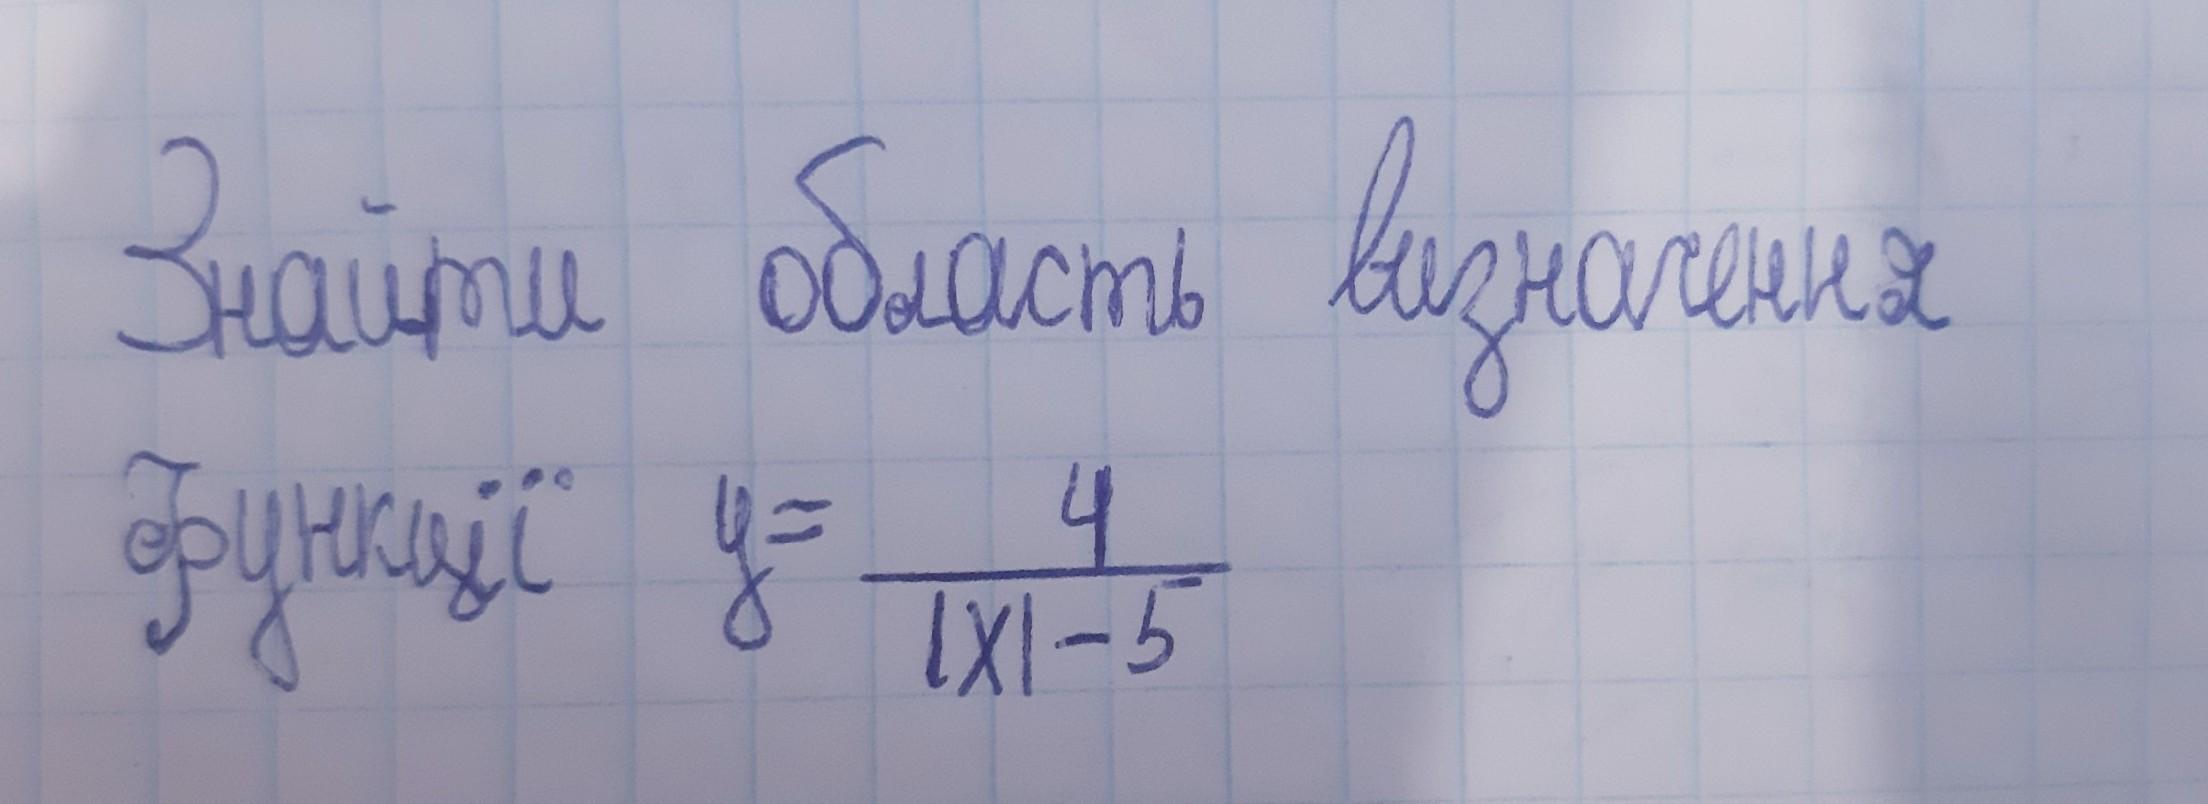 Знайти область визначення
функції y = 4 / |x| - 5